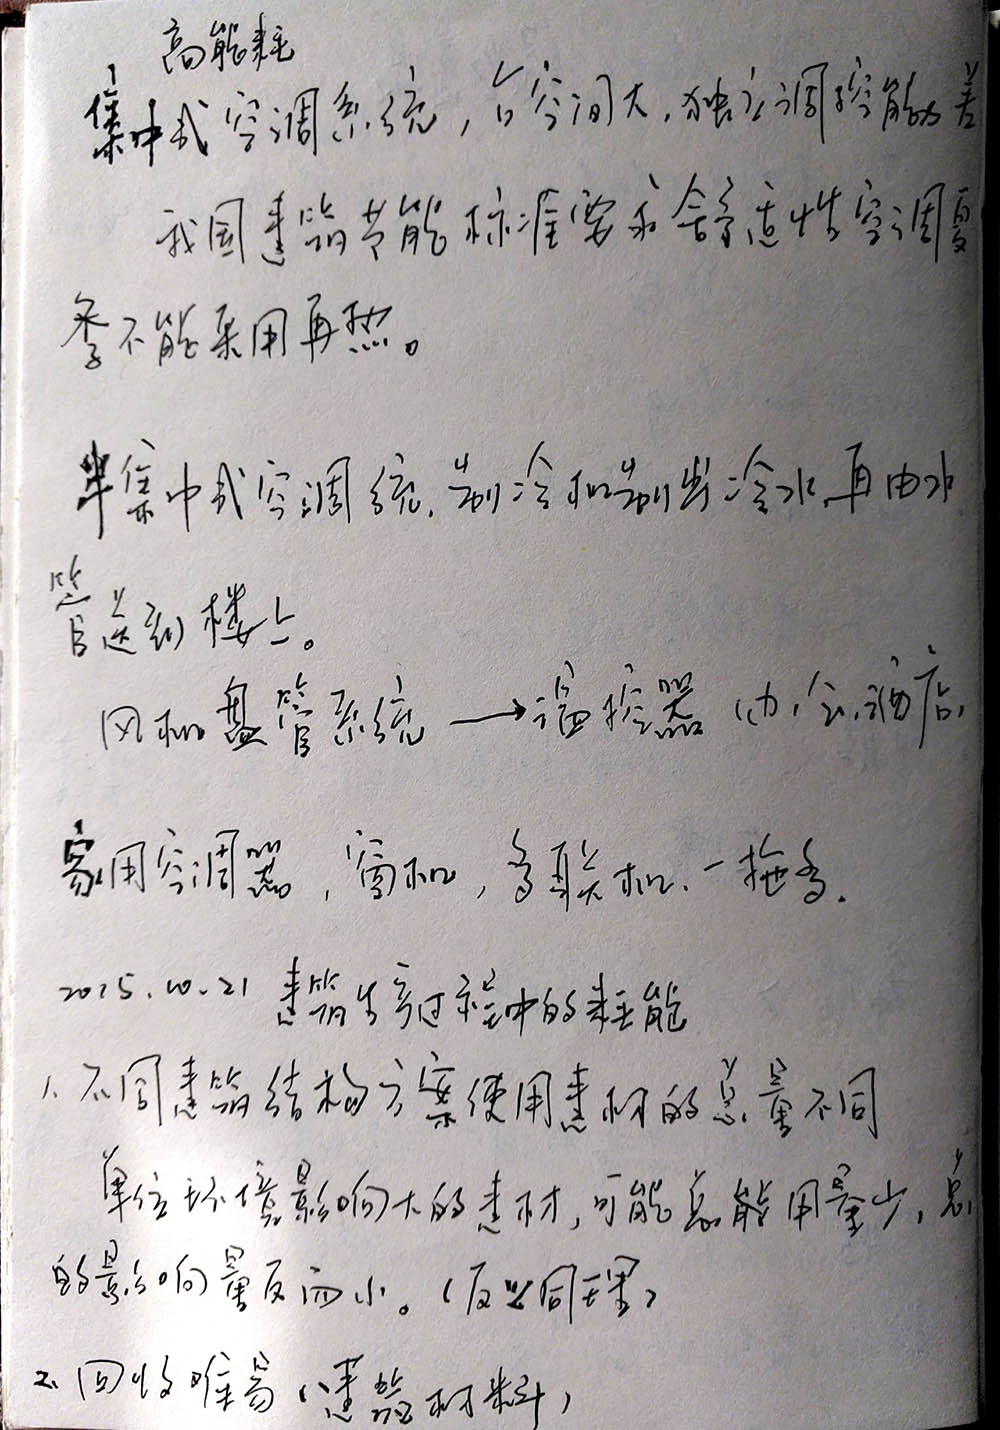 高能耗
集中式空调系统，占空间大，独立调控能力差
我国建筑节能标准要求舒适性空调夏
季不能采用再热。
半集中式空调系统，制冷机制出冷水，再由水
管送到楼上。
风机盘管系统→温控器（办，公，酒店，
家用空调器，窗机，多联机、一拖多．
2015.10.21 建筑生产过程中的耗能
1、不同建筑结构方案使用建材的总量不同
单位环境影响大的建材，可能总能用量少，总
的影响量反而小。（反之同理）
2、回收难易（建筑材料）